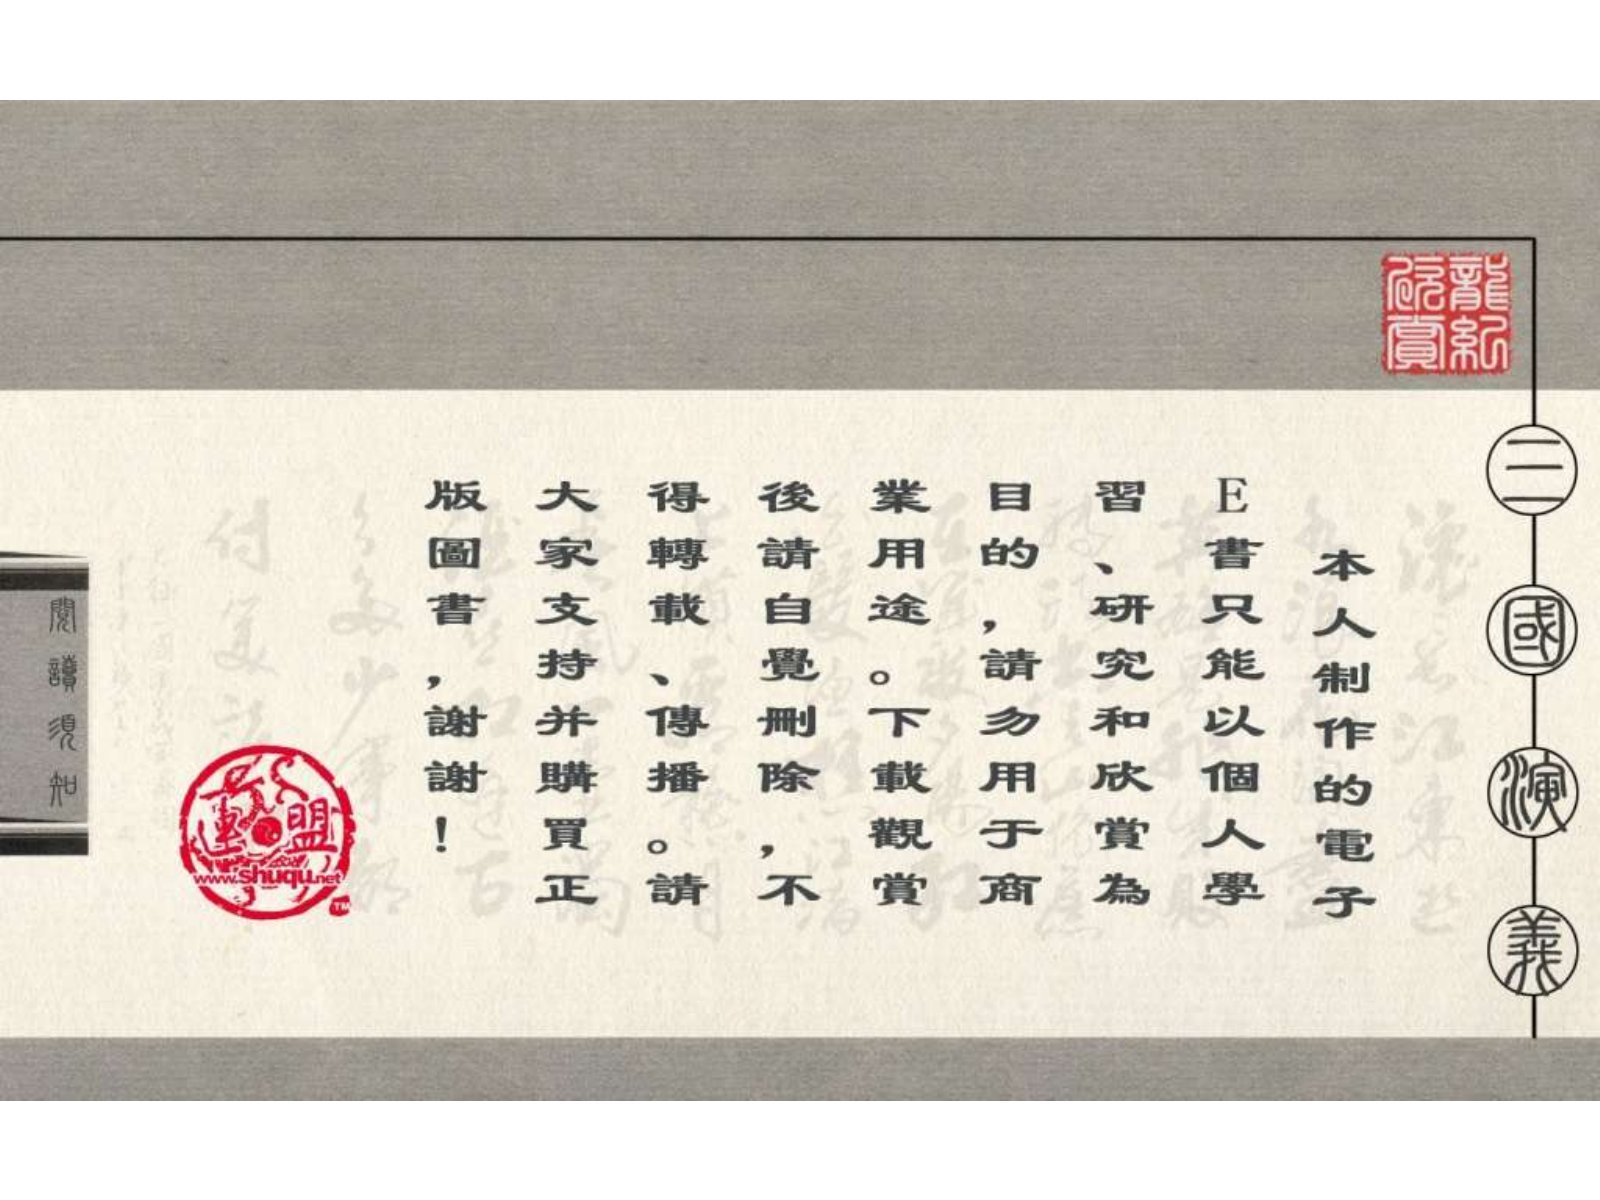 三國演義
本人制作的電子
E書只能以個人學
習、研究和欣賞為
目的,請勿用于商
業用途。下載觀賞
後請自覺刪除,不
得轉載、傳播。請
大家支持并購買正
版圖書,謝謝!
連盟
www.shuqu.net
TM
閱讀須知